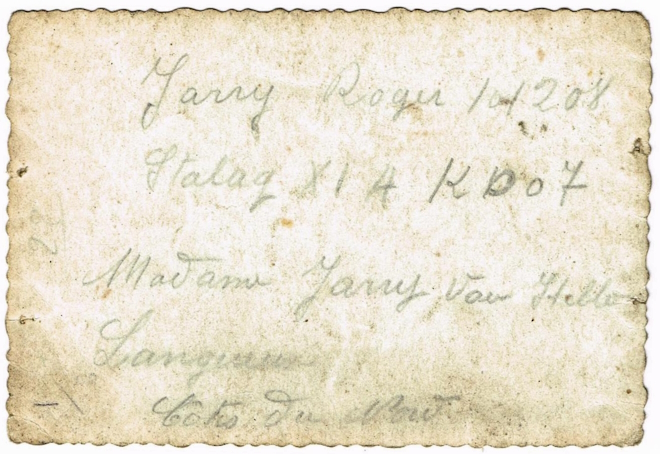 Jarry Roger 101208
Stalag XI A K D 07
Madame Jarry Van
Langueux
Cotes du Nord